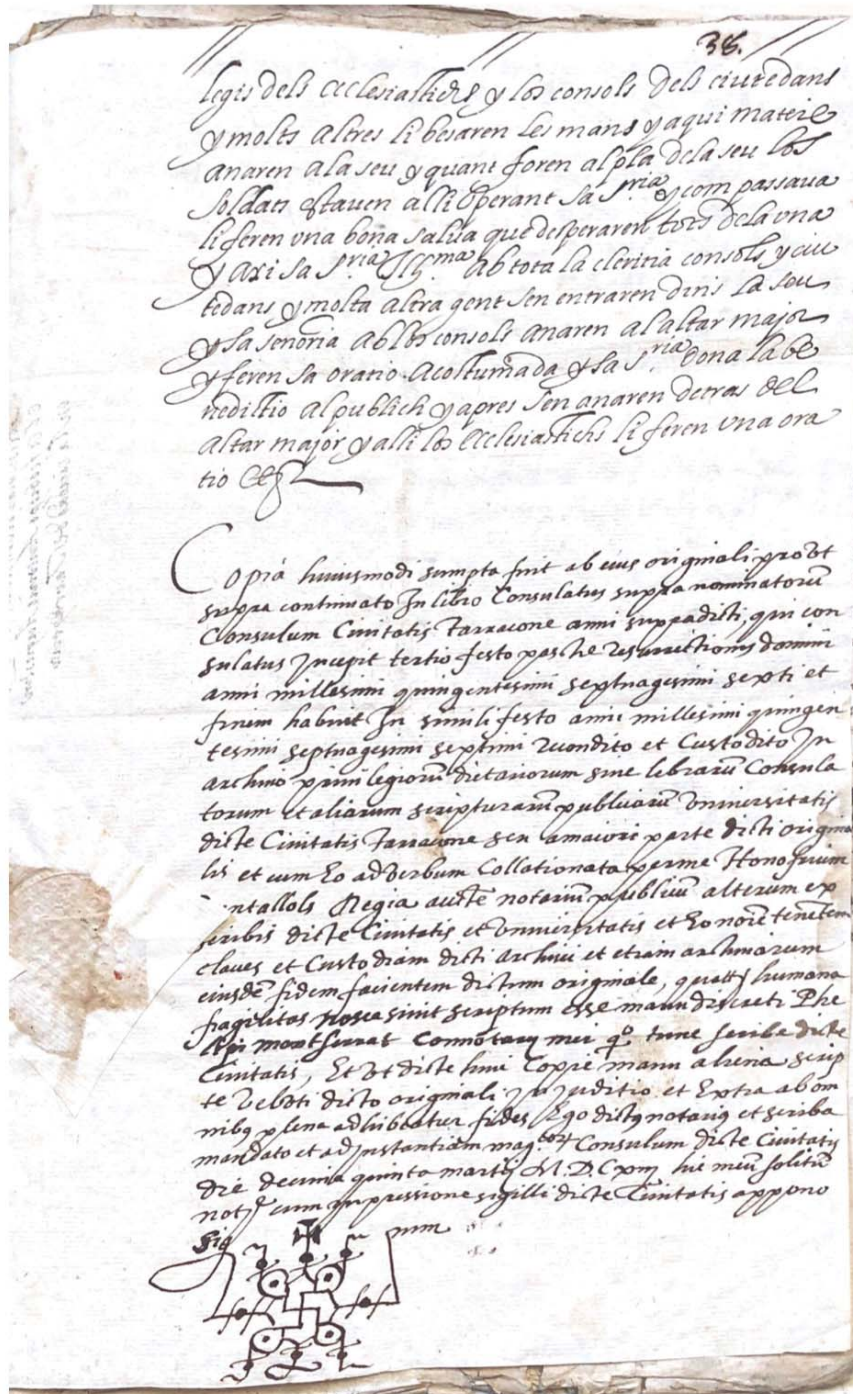 38.
legis dels ecclesiastichs y los consols dels ciutedans
y molts altres li besaren les mans y aqui mateix
anaren a la seu y quant foren al pla de la seu los
soldats estaven alli operant sa s.ria y com passava
li feren una bona salva que desperaren tots de la una
y axi sa s.ria Ill.ma ab tota la cleritia consols y ciu
tedans y molta altra gent sen entraren dins la seu
y sa senoria ab los consols anaren al altar major
y feren sa oratio acostumada y sa s.ria dona la be
neditio al publich y apres sen anaren detras del
altar major y alli los ecclesiastichs li feren una ora
tio
Copia huiusmodi sumpta fuit ab eius originali prout
supra continuato In libro Consulatus supra nominatorum
Consulum Civitatis Tarracone anni supradicti, qui con
sulatus Incepit tertio festo pasche resurrectionis domini
anni millesimi quingentesimi septuagesimi sexti et
finem habuit In simili festo anni millesimi quingen
tesimi septuagesimi septimi recondito et Custodito In
archivo privilegiorum dietariorum sive librarum Consula
torum et aliarum scripturarum publicarum Universitatis
dicte Civitatis Tarracone seu a maiori parte dicti origina
lis et cum Eo ad verbum Collationata per me Honofrium
ntallols Regia aucte notarium publicum alterum ex
scribis dicte Civitatis et Universitatis et Eo noie tenentem
claves et Custodiam dicti archivi et etiam archivorum
eiusde fidem facientem dictum originale, humana
fragilitas nosce sinit scriptum esse manu discreti Phe
lipi montserrat Connotary mei qo. tunc scribe dicte
Civitatis, Et Ut dicte huic Copie manu aliena scrip
te veluti dicto originali In Juditio et Extra ab om
nibus plena adhibeatur fides Ego dictus notarius et scriba
mandato et ad Instantiam Consulum dicte Civitatis
die decima quinta martij M.D.Cxiij hic meum solitum
cum Impressione sigilli dicte Civitatis appono
Sig num